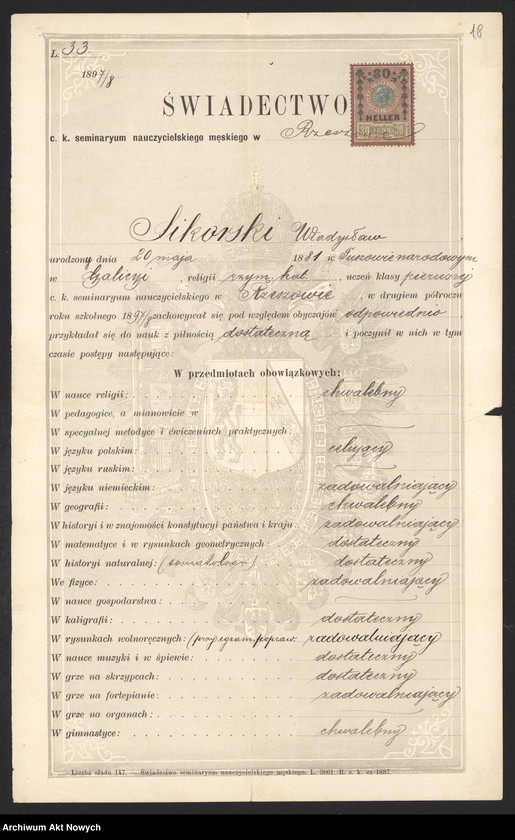 18
L. 33
1897/8
30
HELLER
1898
ŚWIADECTWO
c. k. seminaryum nauczycielskiego męskiego w
Sikorski Władysław
urodzony dnia 20 maja 1881 w Tuszowie narodowym
w Galicyi, religii rzym. kat., uczeń klasy pierwszej
c. k. seminaryum nauczycielskiego w Rzeszowie, w drugiem półroczu
roku szkolnego 1897/8 zachowywał się pod względem obyczajów odpowiednio,
przykładał się do nauk z pilnością dostateczną i poczynił w nich w tym
czasie postępy następujące:
W przedmiotach obowiązkowych:
W nauce religii: chwalebny
W pedagogice, a mianowicie w
W specyalnej metodyce i ćwiczeniach praktycznych:
W języku polskim: celujący
W języku ruskim:
W języku niemieckim: zadowalniający
W geografii: chwalebny
W historyi i w znajomości konstytucyi państwa i kraju zadowalniający
W matematyce i w rysunkach geometrycznych: dostateczny
W historyi naturalnej: (somatologii) dostateczny
We fizyce: zadowalniający
W nauce gospodarstwa:
W kaligrafii: dostateczny
W rysunkach wolnoręcznych: zadowalniający
W nauce muzyki i w śpiewie: dostateczny
W grze na skrzypcach: dostateczny
W grze na fortepianie: zadowalniający
W grze na organach:
W gimnastyce: chwalebny
Liczba składu 147. — Świadectwa seminaryum nauczycielskiego męskiego. L. 3001. R. s. k. ex 1887.
Archiwum Akt Nowych